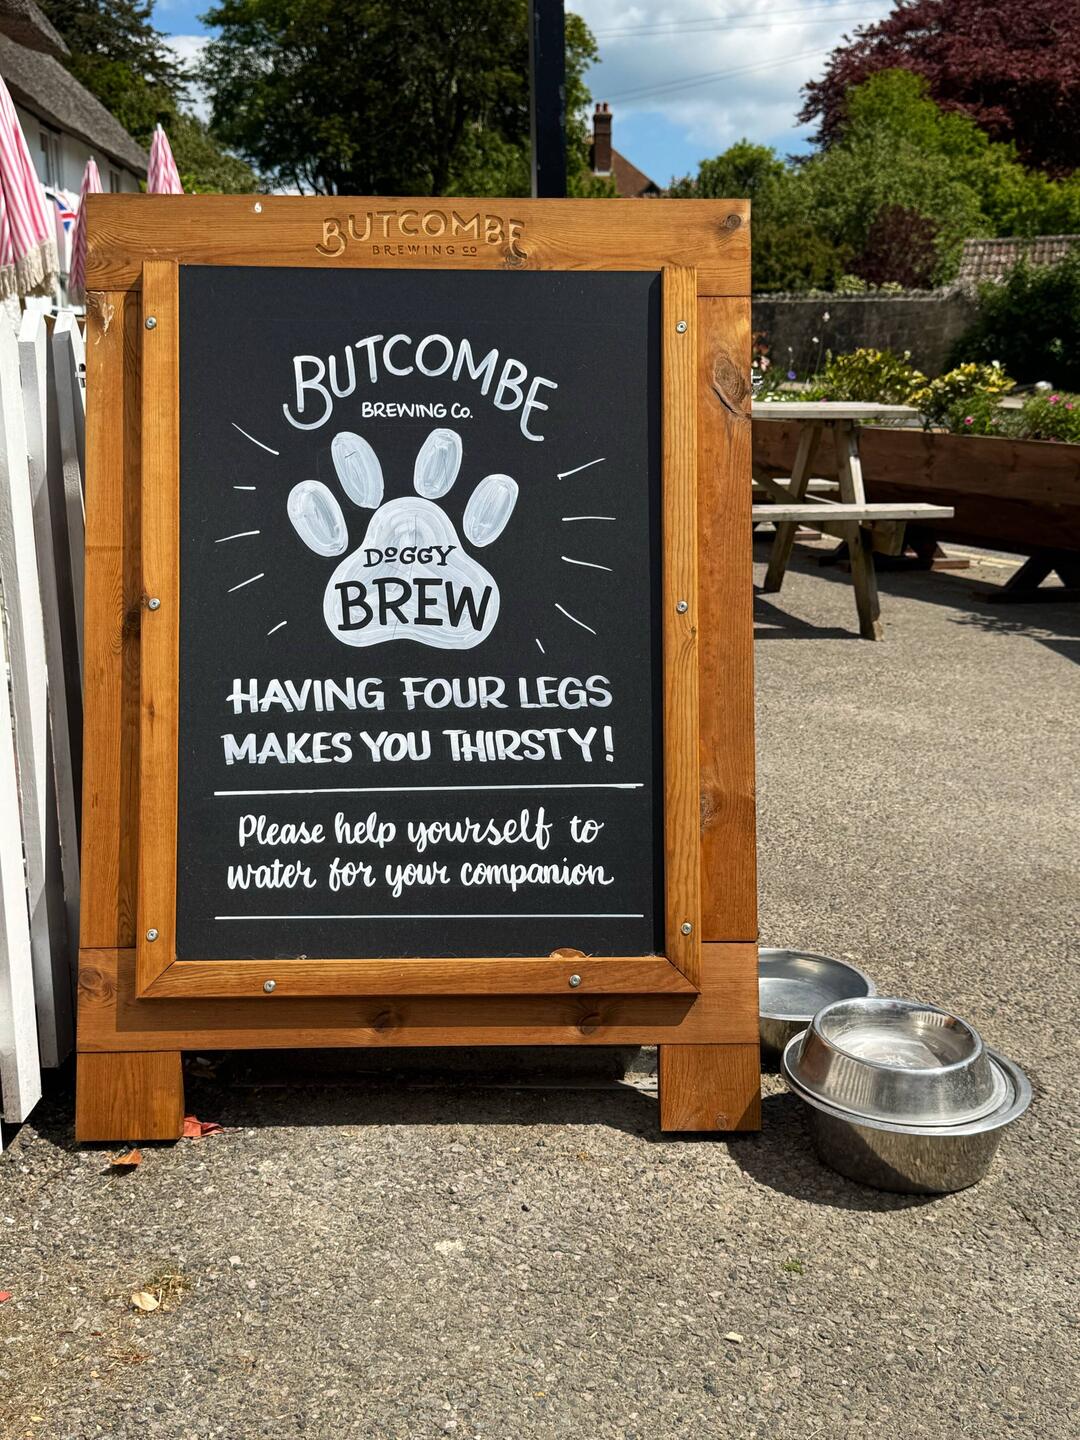 BUTCOMBE
BREWING CO
BUTCOMBE
BREWING Co.
DOGGY
BREW
HAVING FOUR LEGS
MAKES YOU THIRSTY!
Please help yourself to
water for your companion